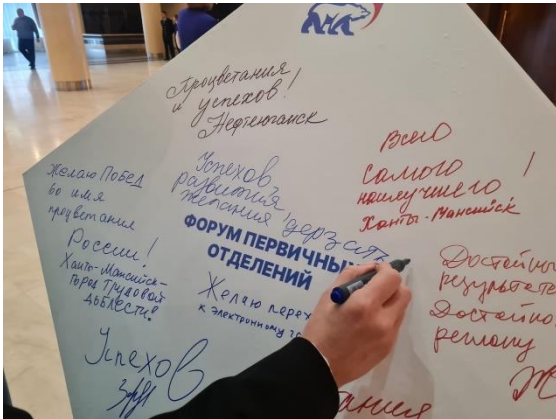 Процветания
и успехов!
Нефтеюганск
Всего
самого
наилучшего!
Ханты-Мансийск
Желаю Побед
во имя
процветания
России!
Ханты-Мансийск-
город трудовой
доблести!
Успехов
развития
желания дерзать
ФОРУМ ПЕРВИЧНЫ
ОТДЕЛЕНИЙ
Желаю
к электронному
Достойны
результато
Достойно
региону
Успехов